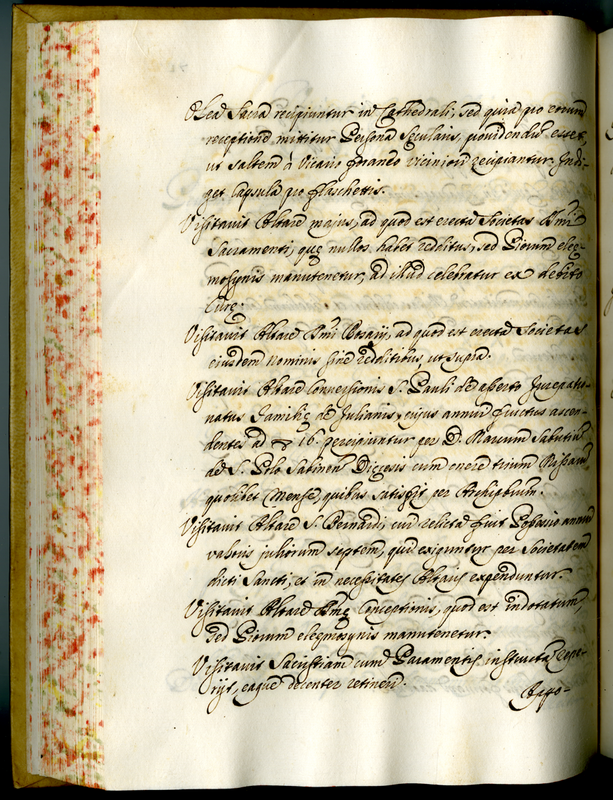 Olea Sacra recipiuntur in Cathedrali, sed quia pro eorum
receptione mittitur Persona Secularis, providendum esset
ut saltem à Vicario foraneo viciniori recipiantur. Indi-
get Capsula pro flaschettis.
Visitavit Altare majus, ad quod est erecta Societas Smi
Sacramenti, quę nullos habet redditus, sed Piorum eleę-
mosynis manutenetur, ad illud celebratur ex debito
Curę.
Visitavit Altare Smi Rosarij, ad quod est erecta Societas
eiusdem nominis sine redditibus, ut supra.
Visitavit Altare Conversionis S. Pauli de asserto Jurepatro-
natus Familię de Julianis, cujus annui fructus ascen-
dentes ad 16. percipiuntur per D. Marcum
de S. Polo Sabinen Dięcesis cum onere trium Missarum
quolibet Mense, quibus satisfit per Archiptum.
Visitavit Altare S. Bernardi, cui relicta fuit annui
valoris juliorum septem, qui exiguntur per Societatem
dicti Sancti, et in necessitates Altaris expenduntur.
Visitavit Altare Smę Conceptionis, quod est indotatum
sed Piorum eleęmosynis manutenetur.
Visitavit Sacristiam cum Paramentis instructa repe-
rijt, eaque decenter retineri.